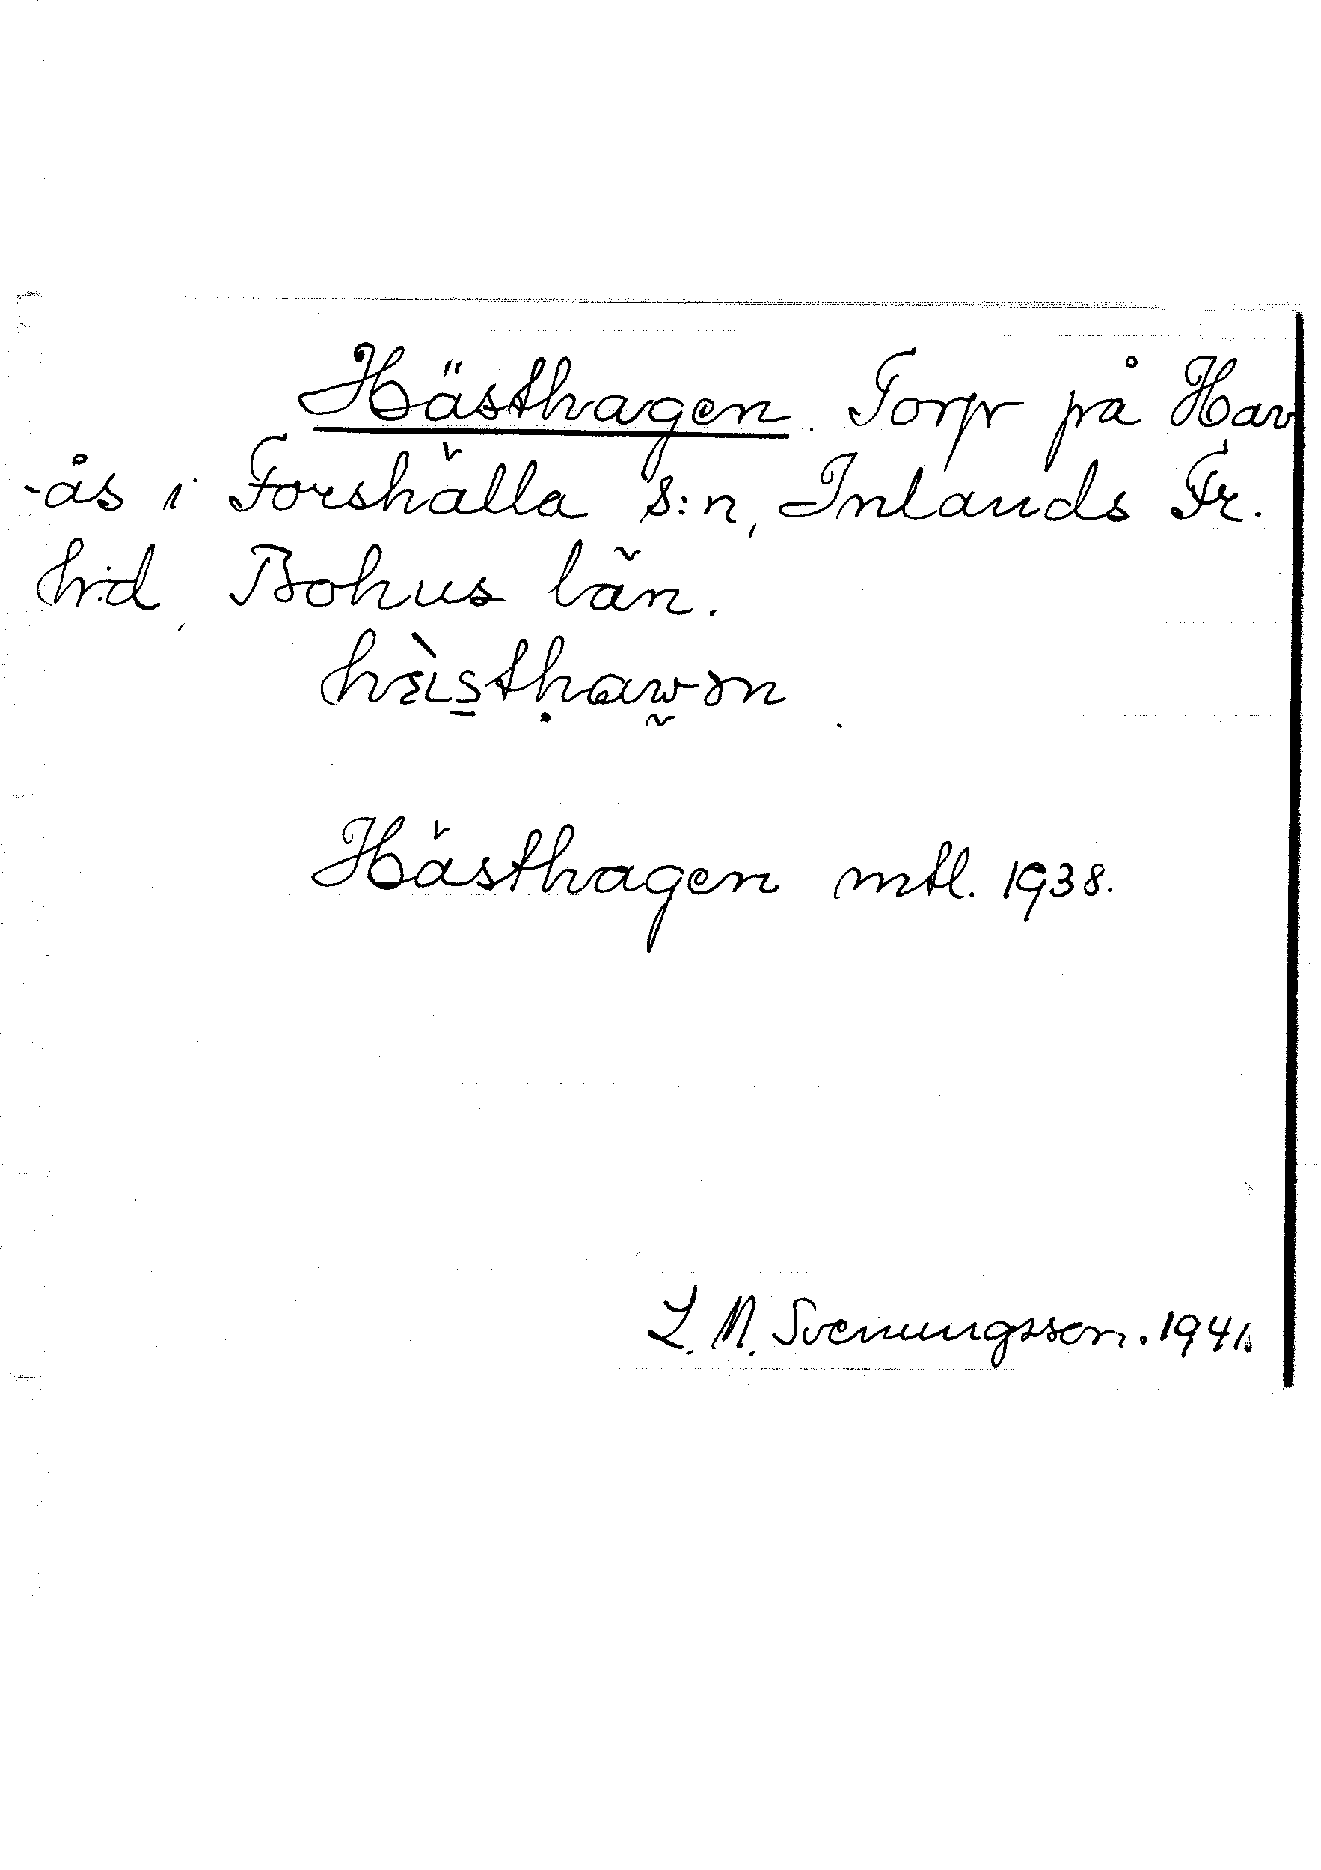 Hästhagen. Torp på Hav
-ås i Forshälla s:n, Inlands Fr.
h:d, Bohus län.
Hästhagen mtl. 1938.
L. M. Svenungsson. 1941.